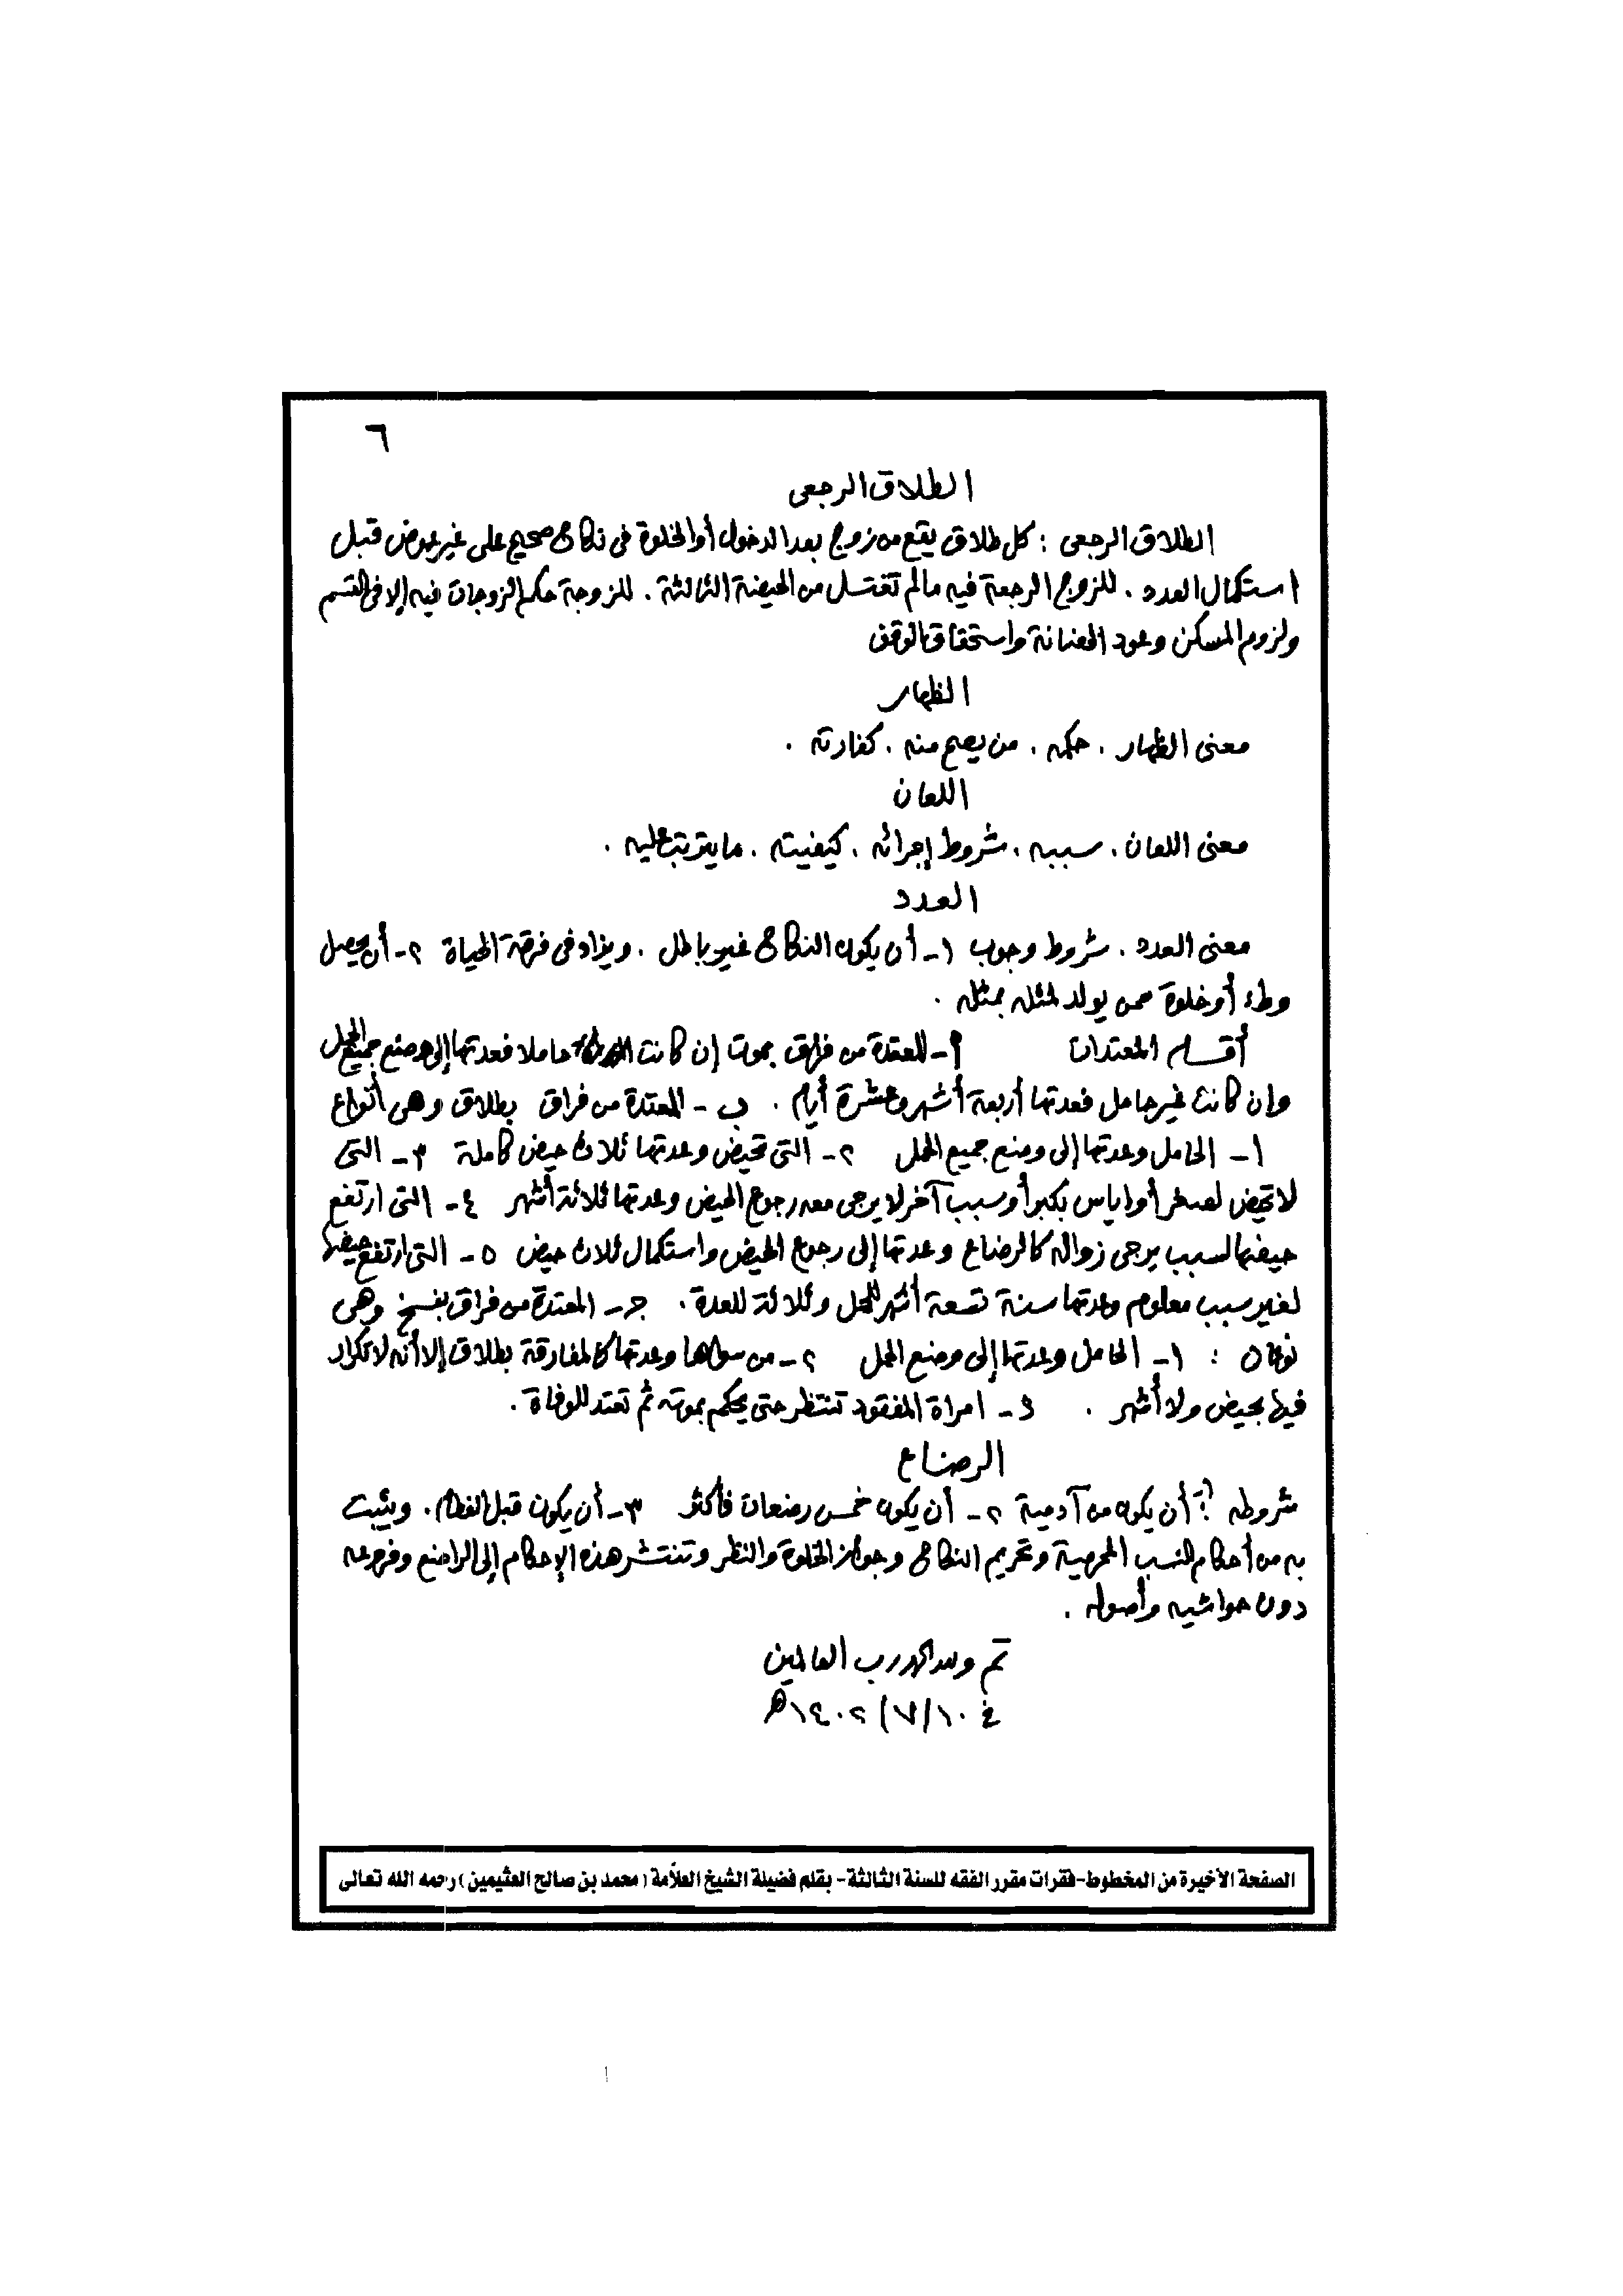 ٦
الطلاق الرجعى
الطلاق الرجعى : كل طلاق يقع من زوج بعد الدخول أو الخلوة فى نكاح صحيح على غير عوض قبل
استكمال العدد . للزوج الرجعة فيه مالم تغتسل من الحيضة الثالثة . للزوجة حكم الزوجات فيه إلا فى القسم
ولزوم المسكن وعود الحضانة واستحقاق الوقف
الظهار
معنى الظهار . حكمه . من يصح منه . كفارته .
اللعان
معنى اللعان . سببه . شروط إجرائه . كيفيته . ما يترتب عليه .
العدد
معنى العدد . شروط وجوب ١- أن يكون النكاح غير باطل . ويزاد فى فرقة الحياة ٢- أن يحصل
وطء أو خلوة ممن يولد لمثله بمثله .
أقسام المعتدات أ- المعتدة من فراق بموت إن كانت حاملا فعدتها إلى وضع جميع الحمل
وإن كانت غير حامل فعدتها أربعة أشهر وعشرة أيام . ب - المعتدة من فراق بطلاق وهى أنواع
١- الحامل وعدتها إلى وضع جميع الحمل ٢- التى تحيض وعدتها ثلاث حيض كاملة ٣- التى
لا تحيض لصغر أو إياس بكبر أو سبب آخر لا يرجى معه رجوع الحيض وعدتها ثلاثة أشهر ٤- التى ارتفع
حيضها لسبب يرجى زواله كالرضاع وعدتها إلى رجوع الحيض واستكمال ثلاث حيض ٥- التى ارتفع حيضها
لغير سبب معلوم وعدتها سنة تسعة أشهر للحمل وثلاثة للعدة . جـ - المعتدة من فراق بفسخ وهى
نوعان : ١- الحامل وعدتها إلى وضع الحمل ٢- من سواها وعدتها كالمفارقة بطلاق إلا أنه لا تكرار
فيها بحيض ولا أشهر . د - امرأة المفقود تنتظر حتى يحكم بموته ثم تعتد للوفاة .
الرضاع
شروطه أن يكون من آدمية ٢- أن يكون خمس رضعات فأكثر ٣- أن يكون قبل الفطام . ويثبت
به من أحكام النسب المحرمية وتحريم النكاح وجواز الخلوة والنظر وتنتشر هذه الأحكام إلى الراضع وفروعه
دون حواشيه وأصوله .
تم ولله الحمد رب العالمين
فى ١٠/٧/١٤٠٢هـ
الصفحة الأخيرة من المخطوط - فقرات مقرر الفقه للسنة الثالثة - بقلم فضيلة الشيخ العلاّمة (محمد بن صالح العثيمين) رحمه الله تعالى